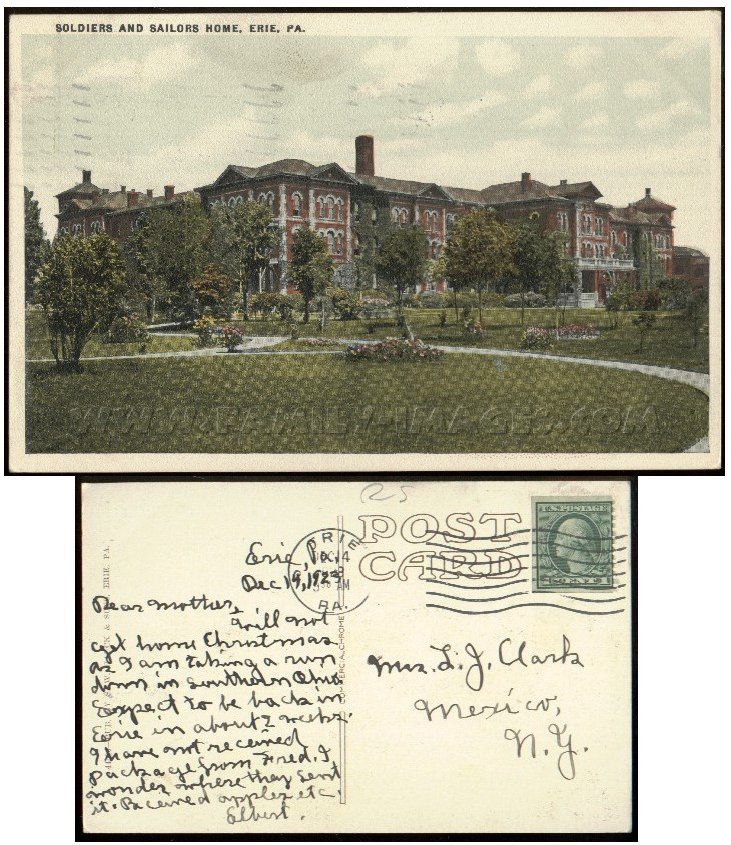 SOLDIERS AND SAILORS HOME, ERIE, PA.
WWW.FAMILY-IMAGES.COM
25
POST
CARD
U.S. POSTAGE
ERIE
PA.
AM
COMMERCIALCHROME
ERIE, PA.
Erie, Pa.
Dec 19, 192
Dear mother,
will not
get home Christmas
as I am taking a run
down in southern Ohio
Expect to be back in
Erie in about 2 weeks.
I have not received
package from Fred. I
wonder where they sent
it. Received apples etc.
Elbert.
Mrs. L. J. Clark
Mexico,
N.Y.